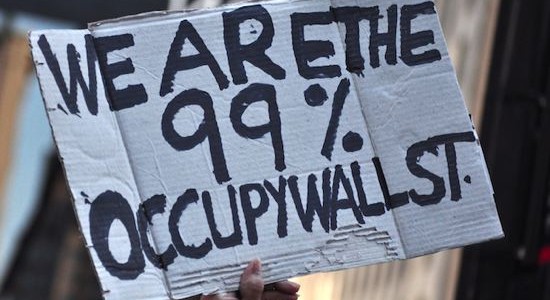 WE ARE THE
99%
OCCUPY WALL ST.